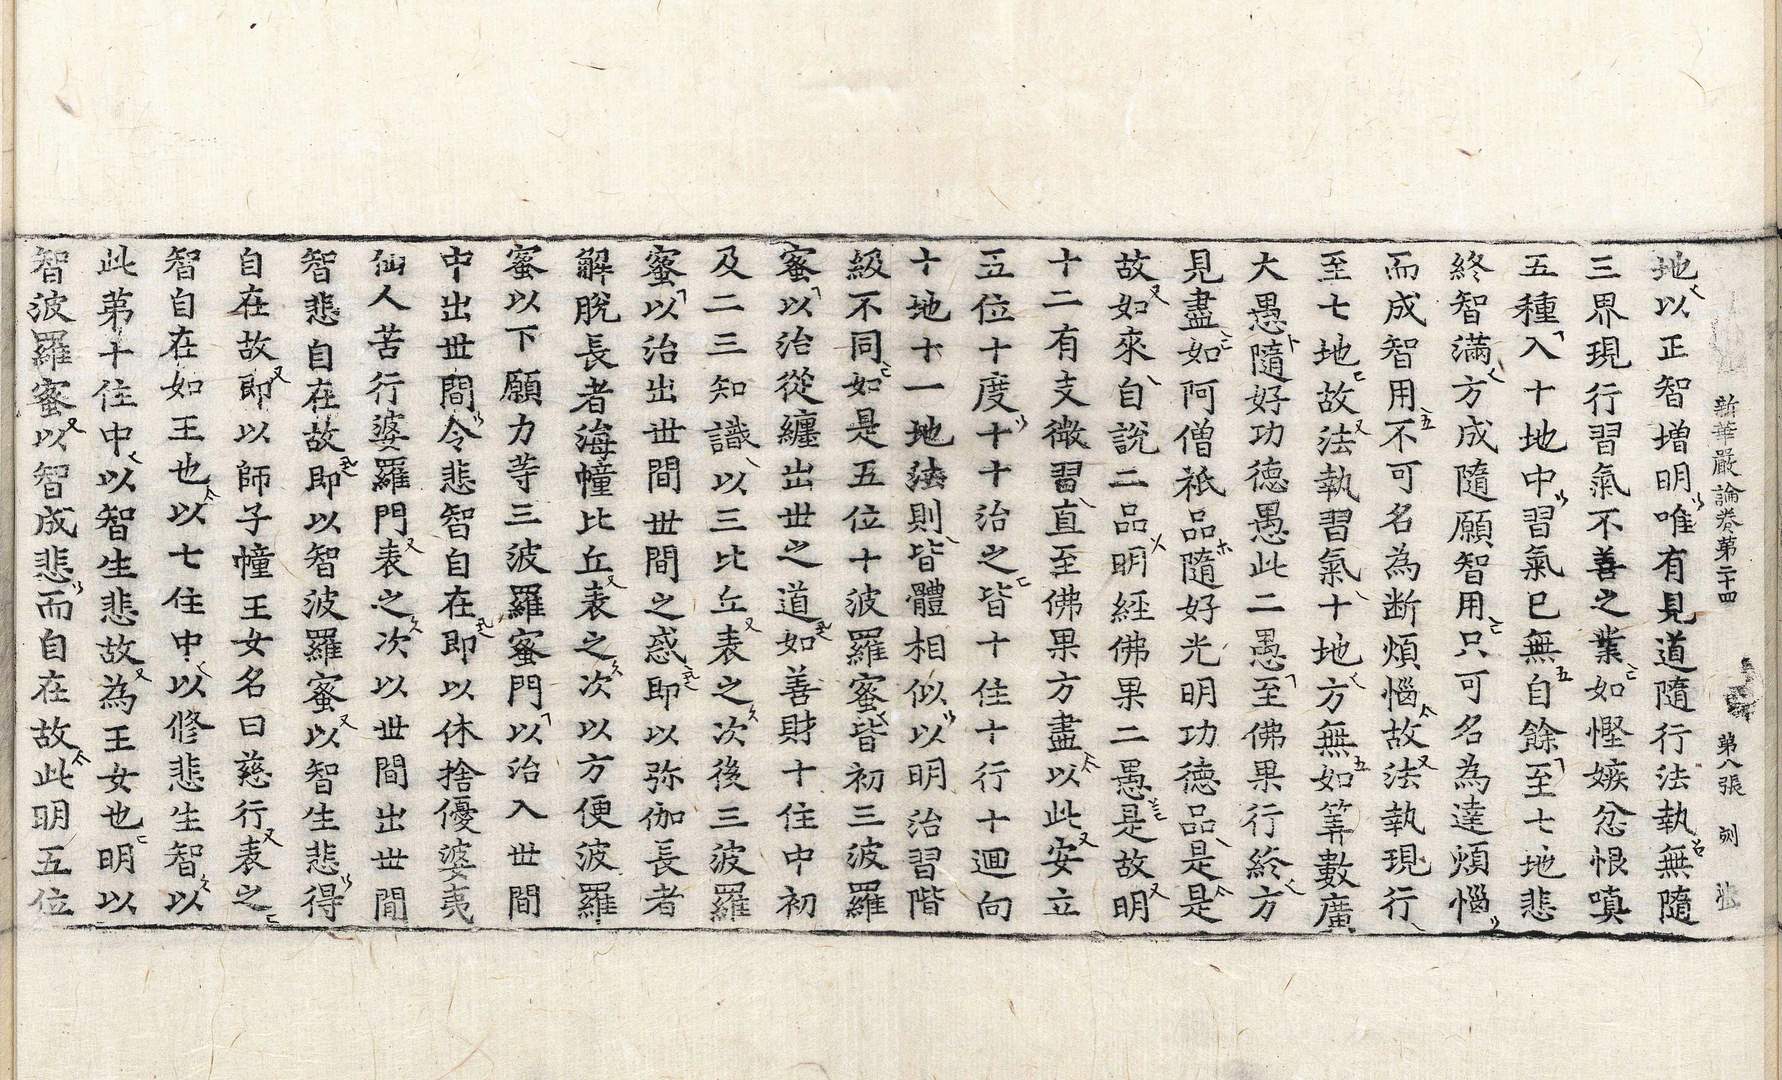 新華嚴論卷第二十四 第八張
地以正智增明唯有見道隨行法執無隨
三界現行習氣不善之業如慳嫉忿恨嗔
五種入十地中習氣已無自餘至七地悲
終智滿方成隨願智用只可名為達煩惱
而成智用不可名為断煩惱故法執現行
至七地故法執習氣十地方無如筭數廣
大愚隨好功德愚此二愚至佛果行終方
見盡如阿僧祇品隨好光明功德品是是
故如來自說二品明經佛果二愚是故明
十二有支微習直至佛果方盡以此安立
五位十度十十治之皆十住十行十迴向
十地十一地法則皆體相似以明治習階
級不同如是五位十波羅蜜皆初三波羅
蜜以治從纏出世之道如善財十住中初
及二三知識以三比丘表之次後三波羅
蜜以治出世間世間之惑即以弥伽長者
解脫長者海幢比丘表之次以方便波羅
蜜以下願力等三波羅蜜門以治入世間
中出世間令悲智自在即以休捨優婆夷
仙人苦行婆羅門表之次以世間出世間
智悲自在故即以智波羅蜜以智生悲得
自在故即以師子幢王女名曰慈行表之
智自在如王也以七住中以修悲生智以
此第十住中以智生悲故為王女也明以
智波羅蜜以智成悲而自在故此明五位